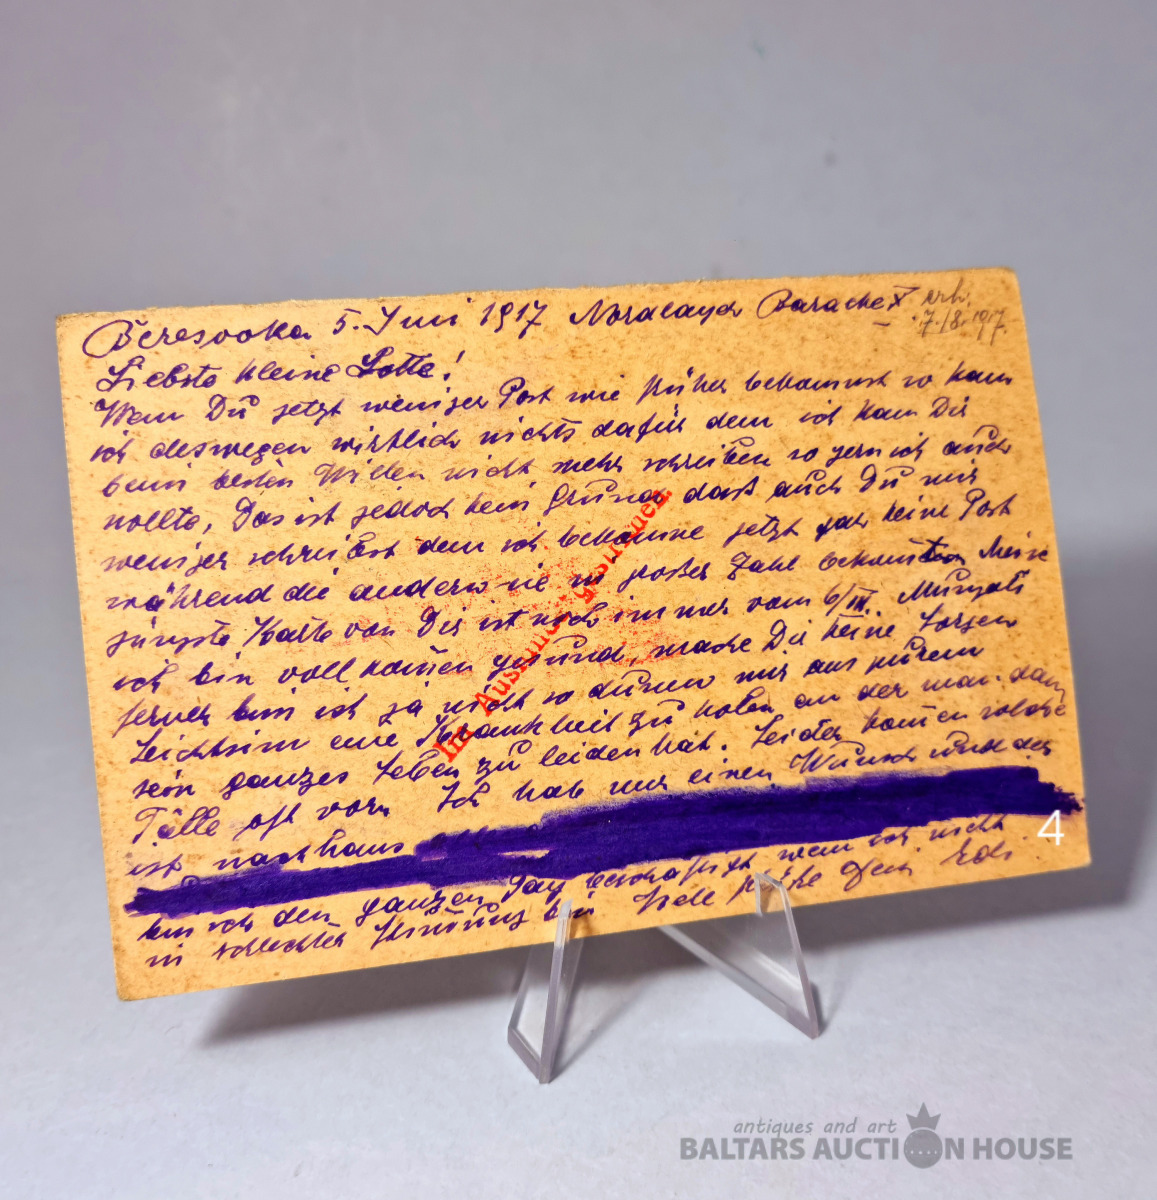 Beresovka 5. Juni 1917 Baracke X erh.
7./8. 1917.
Liebste kleine Lotte!
Wenn Du jetzt weniger Post wie früher bekommst so kann
ich deswegen wirklich nichts dafür denn ich kann Dir
beim besten Willen nicht mehr schreiben so gern ich auch
wollte, Das ist jedoch kein Grund dass auch Du mir
weniger schreibst denn ich bekomme jetzt gar keine Post
während die andern sie in großer Zahl Meine
jüngste Karte von Dir ist noch immer vom 6/III.
ich bin vollkommen gesund, mache Dir keine Sorgen
ferner bin ich ja nicht so mir aus purem
Leichtsinn eine Krankheit zu holen an der man dann
sein ganzes Leben zu leiden hat. Leider kommen solche
Fälle oft vor. Ich hab nur einen Wunsch und der
ist nachhaus
bin ich den ganzen Tag wenn ich nicht
in schlechter Stimmung bin Viele Dein Edi
Im Ausland
4
antiques and art
BALTARS AUCTION HOUSE